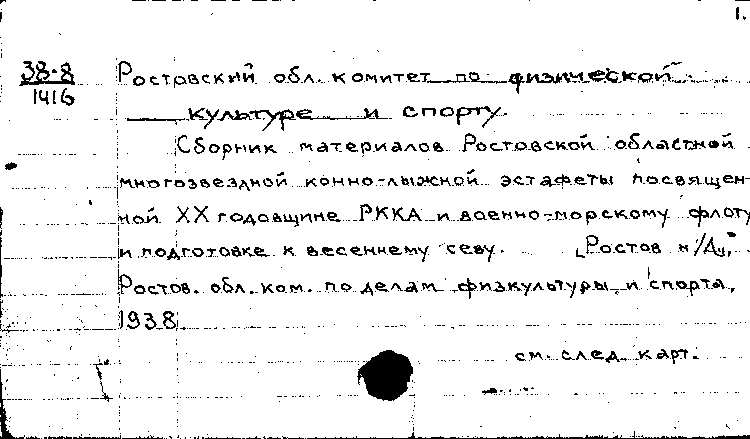 1.
38-8
1416
Ростовский обл. комитет по физической
культуре и спорту.
Сборник материалов Ростовской областной
многозвездной конно-лыжной эстафеты посвящен-
ной XX годовщине РККА и военно-морскому флоту
и подготовке к весеннему севу. [Ростов н/Д],
Ростов. обл. ком. по делам физкультуры и спорта,
1938.
см. след. карт.